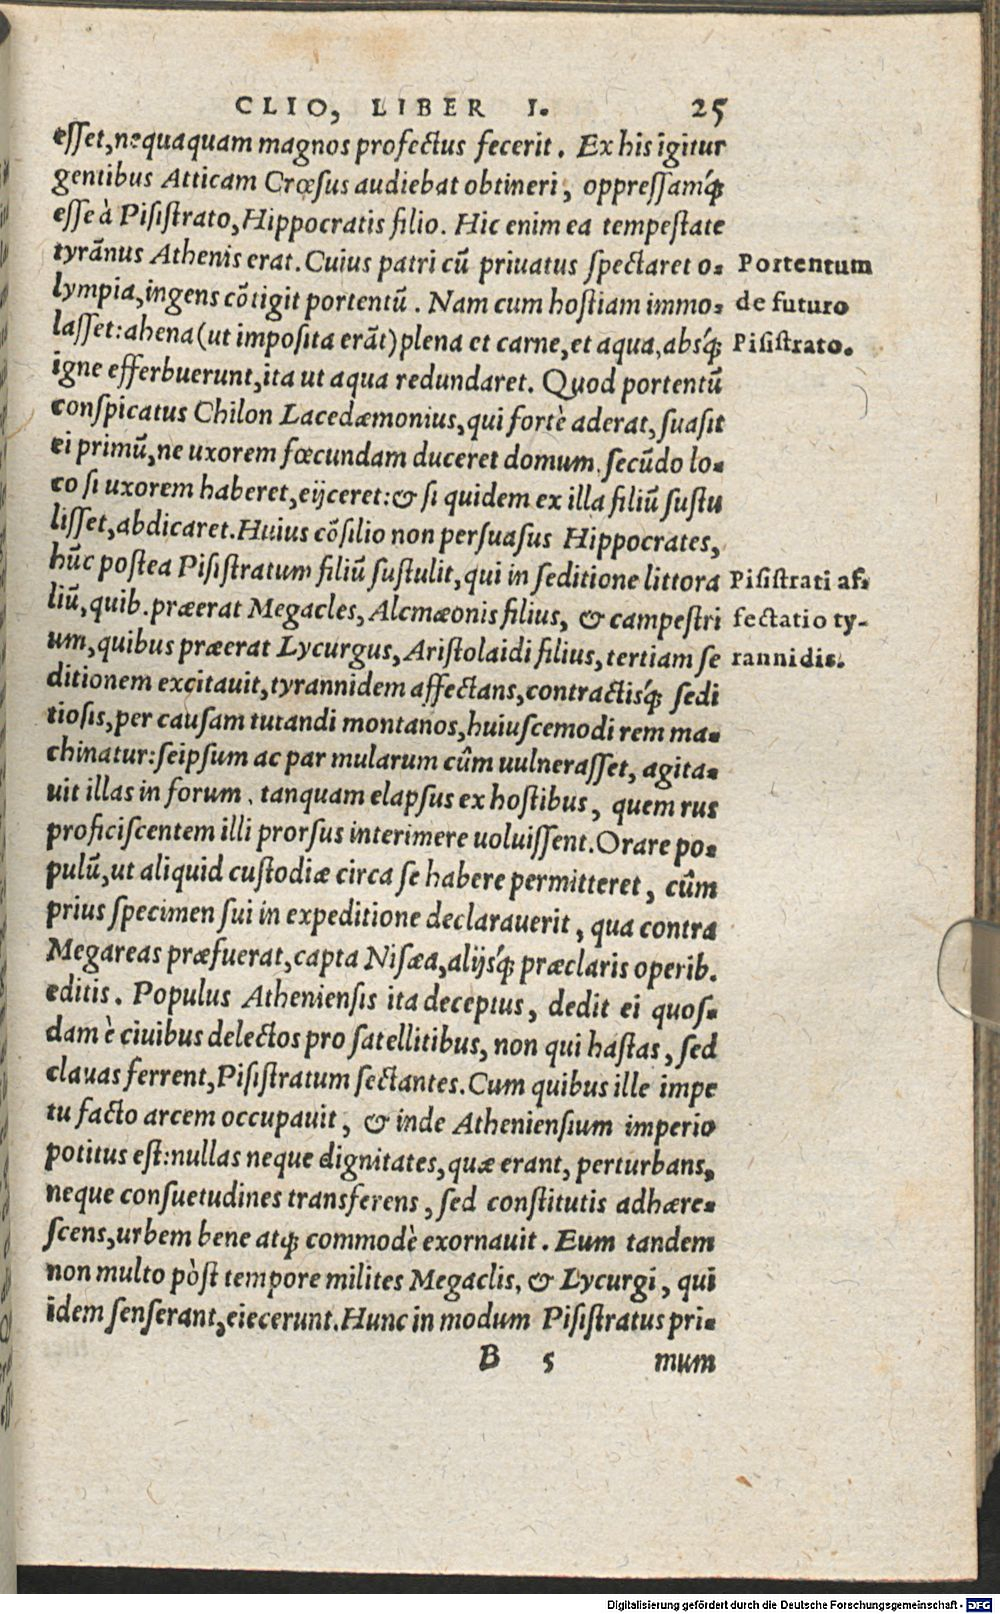 CLIO, LIBER I. 25
eſſet, nequaquam magnos profectus fecerit. Ex his igitur
gentibus Atticam Crœſus audiebat obtineri, oppreſſamq́;
eſſe à Piſiſtrato, Hippocratis filio. Hic enim ea tempeſtate
tyrãnus Athenis erat. Cuius patri cũ priuatus ſpectaret o-
lympia, ingens cõtigit portentũ. Nam cum hoſtiam immo-
laſſet: ahena (ut impoſita erãt) plena et carne, et aqua, absq́;
igne efferbuerunt, ita ut aqua redundaret. Quod portentũ
conſpicatus Chilon Lacedæmonius, qui fortè aderat, ſuaſit
ei primũ, ne uxorem fœcundam duceret domum. ſecũdo lo-
co ſi uxorem haberet, eijceret: & ſi quidem ex illa filiũ ſuſtu
liſſet, abdicaret. Huius cõſilio non perſuaſus Hippocrates,
hũc poſtea Piſiſtratum filiũ ſuſtulit, qui in ſeditione littora
liũ, quib. præerat Megacles, Alcmæonis filius, & campeſtri
um, quibus præerat Lycurgus, Ariſtolaidi filius, tertiam ſe
ditionem excitauit, tyrannidem affectans, contractisq́; ſedi
tioſis, per cauſam tutandi montanos, huiuſcemodi rem ma-
chinatur: ſeipſum ac par mularum cûm uulneraſſet, agita-
uit illas in forum, tanquam elapſus ex hoſtibus, quem rus
proficiſcentem illi prorſus interimere uoluiſſent. Orare po-
pulũ, ut aliquid cuſtodiæ circa ſe habere permitteret, cûm
prius ſpecimen ſui in expeditione declarauerit, qua contra
Megareas præfuerat, capta Niſæa, alijsq́; præclaris operib.
editis. Populus Athenienſis ita deceptus, dedit ei quoſ-
dam è ciuibus delectos pro ſatellitibus, non qui haſtas, ſed
clauas ferrent, Piſiſtratum ſectantes. Cum quibus ille impe
tu facto arcem occupauit, & inde Athenienſium imperio
potitus eſt: nullas neque dignitates, quæ erant, perturbans,
neque conſuetudines transferens, ſed conſtitutis adhære-
ſcens, urbem bene atq; commodè exornauit. Eum tandem
non multo pòſt tempore milites Megaclis, & Lycurgi, qui
idem ſenſerant, eiecerunt. Hunc in modum Piſiſtratus pri-
B 5 mum
Portentum
de futuro
Piſiſtrato.
Piſiſtrati af-
fectatio ty-
rannidis.
Digitalisierung gefördert durch die Deutsche Forschungsgemeinschaft - DFG